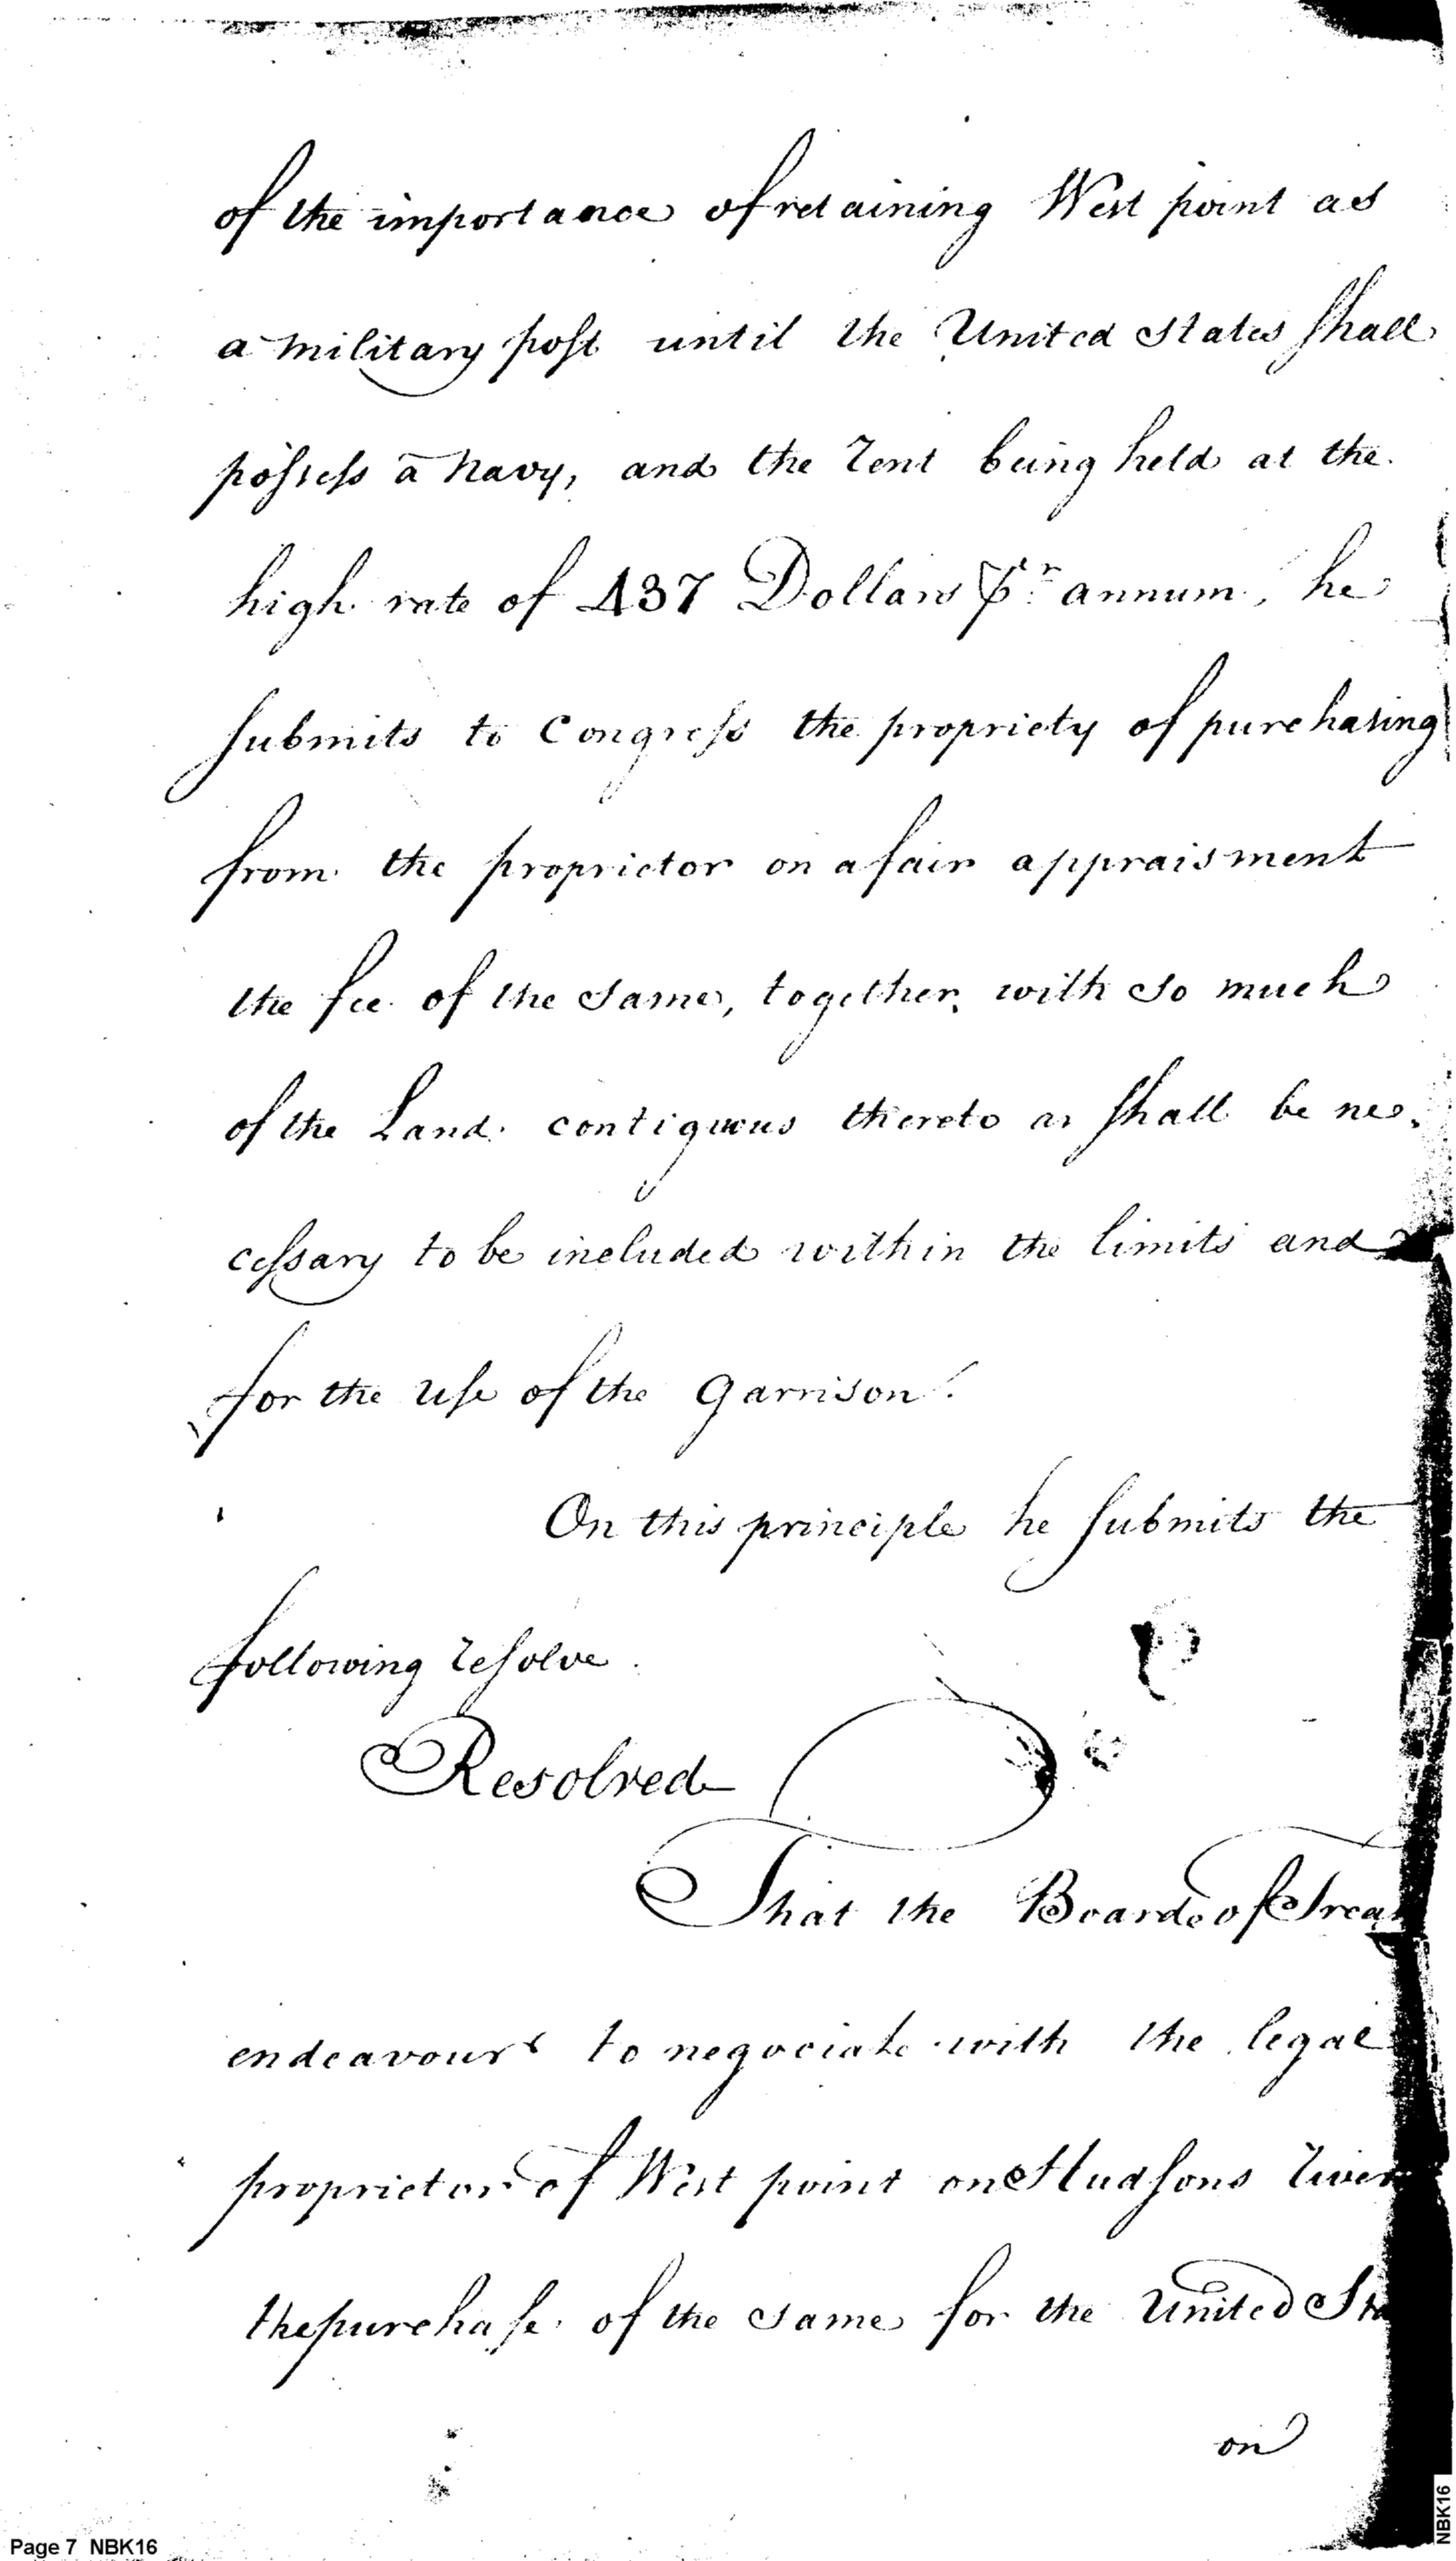 of the importance of retaining West point as
a military post until the United States shall
possess a Navy, and the rent being held at the
high rate of 437 Dollars pr. annum, he
submits to Congress the propriety of purchasing
from the proprietor on a fair appraisment
the fee of the same, together, with so much
of the Land contiguous thereto as shall be ne-
cessary to be included within the limits and
for the use of the Garrison.
On this principle he submits the
following resolve.
Resolved
That the Board of Treas
endeavour to negociate with the legal
proprietor of West point on Hudsons river
the purchase of the same for the United Sta
on
Page 7 NBK16
NBK16